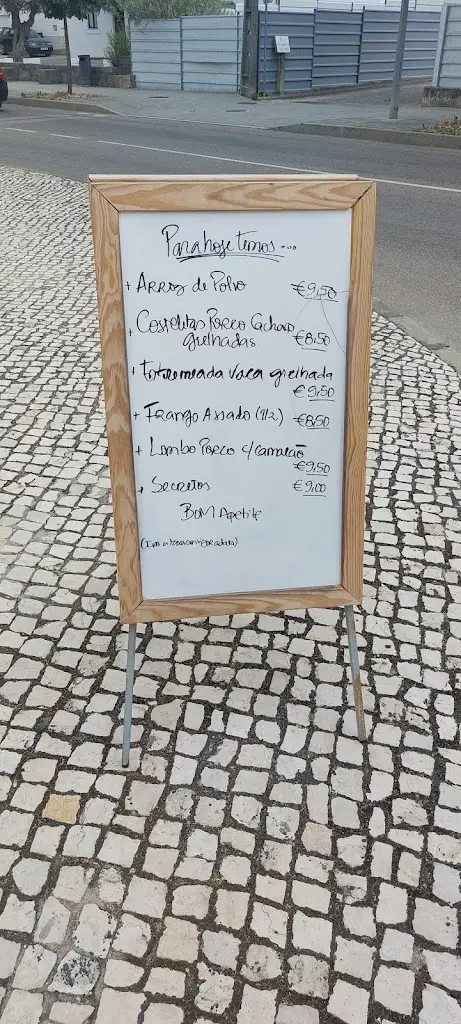 Para hoje temos...
+ Arroz de Polvo €9,50
+ Costelitas Porco Cachaço
grelhadas €8,50
+ Entremeada Vaca grelhada
€9,50
+ Frango Assado (1/2) €8,50
+ Lombo Porco c/camarão
€9,50
+ Secretos €9,00
Bom Apetite